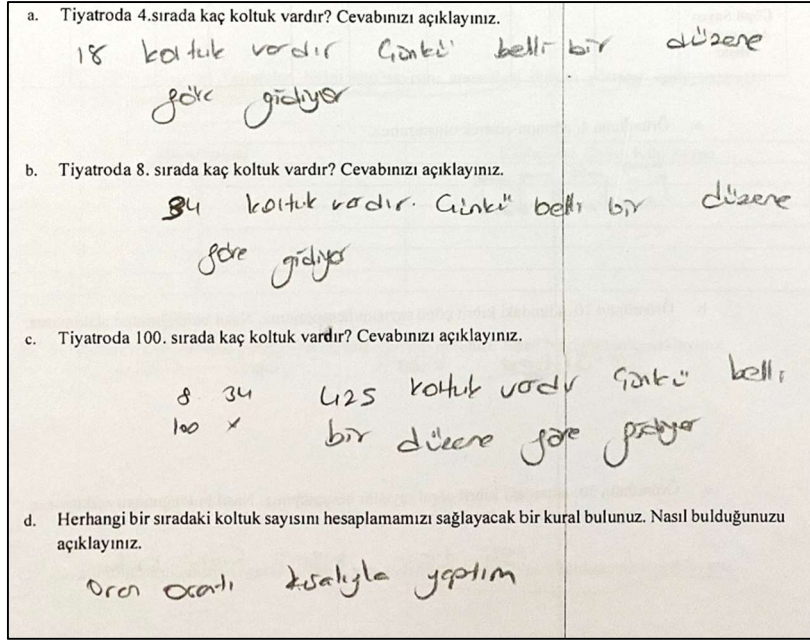 a. Tiyatroda 4.sırada kaç koltuk vardır? Cevabınızı açıklayınız.
18 koltuk vardır Çünkü belli bir düzene
göre gidiyor
b. Tiyatroda 8. sırada kaç koltuk vardır? Cevabınızı açıklayınız.
34 koltuk vardır. Çünkü belli bir düzene
göre gidiyor
c. Tiyatroda 100. sırada kaç koltuk vardır? Cevabınızı açıklayınız.
8 34 425 koltuk vardır Çünkü belli
100 x bir düzene göre gidiyor
d. Herhangi bir sıradaki koltuk sayısını hesaplamamızı sağlayacak bir kural bulunuz. Nasıl bulduğunuzu
açıklayınız.
Oran yaptım